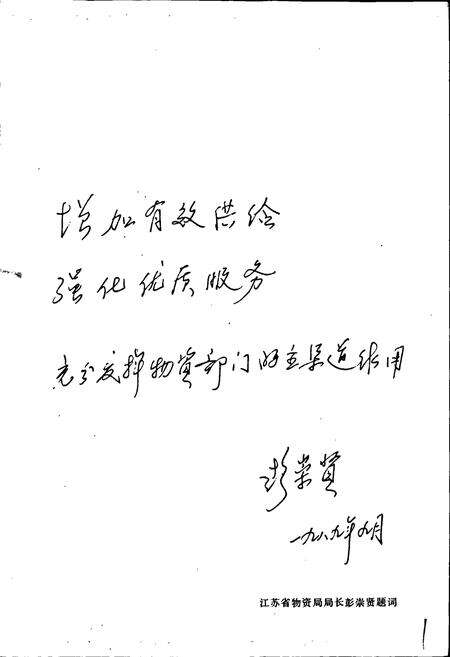 增加有效供给
强化优质服务
充分发挥物资部门的主渠道作用
彭崇贤
一九八九年九月
江苏省物资局局长彭崇贤题词